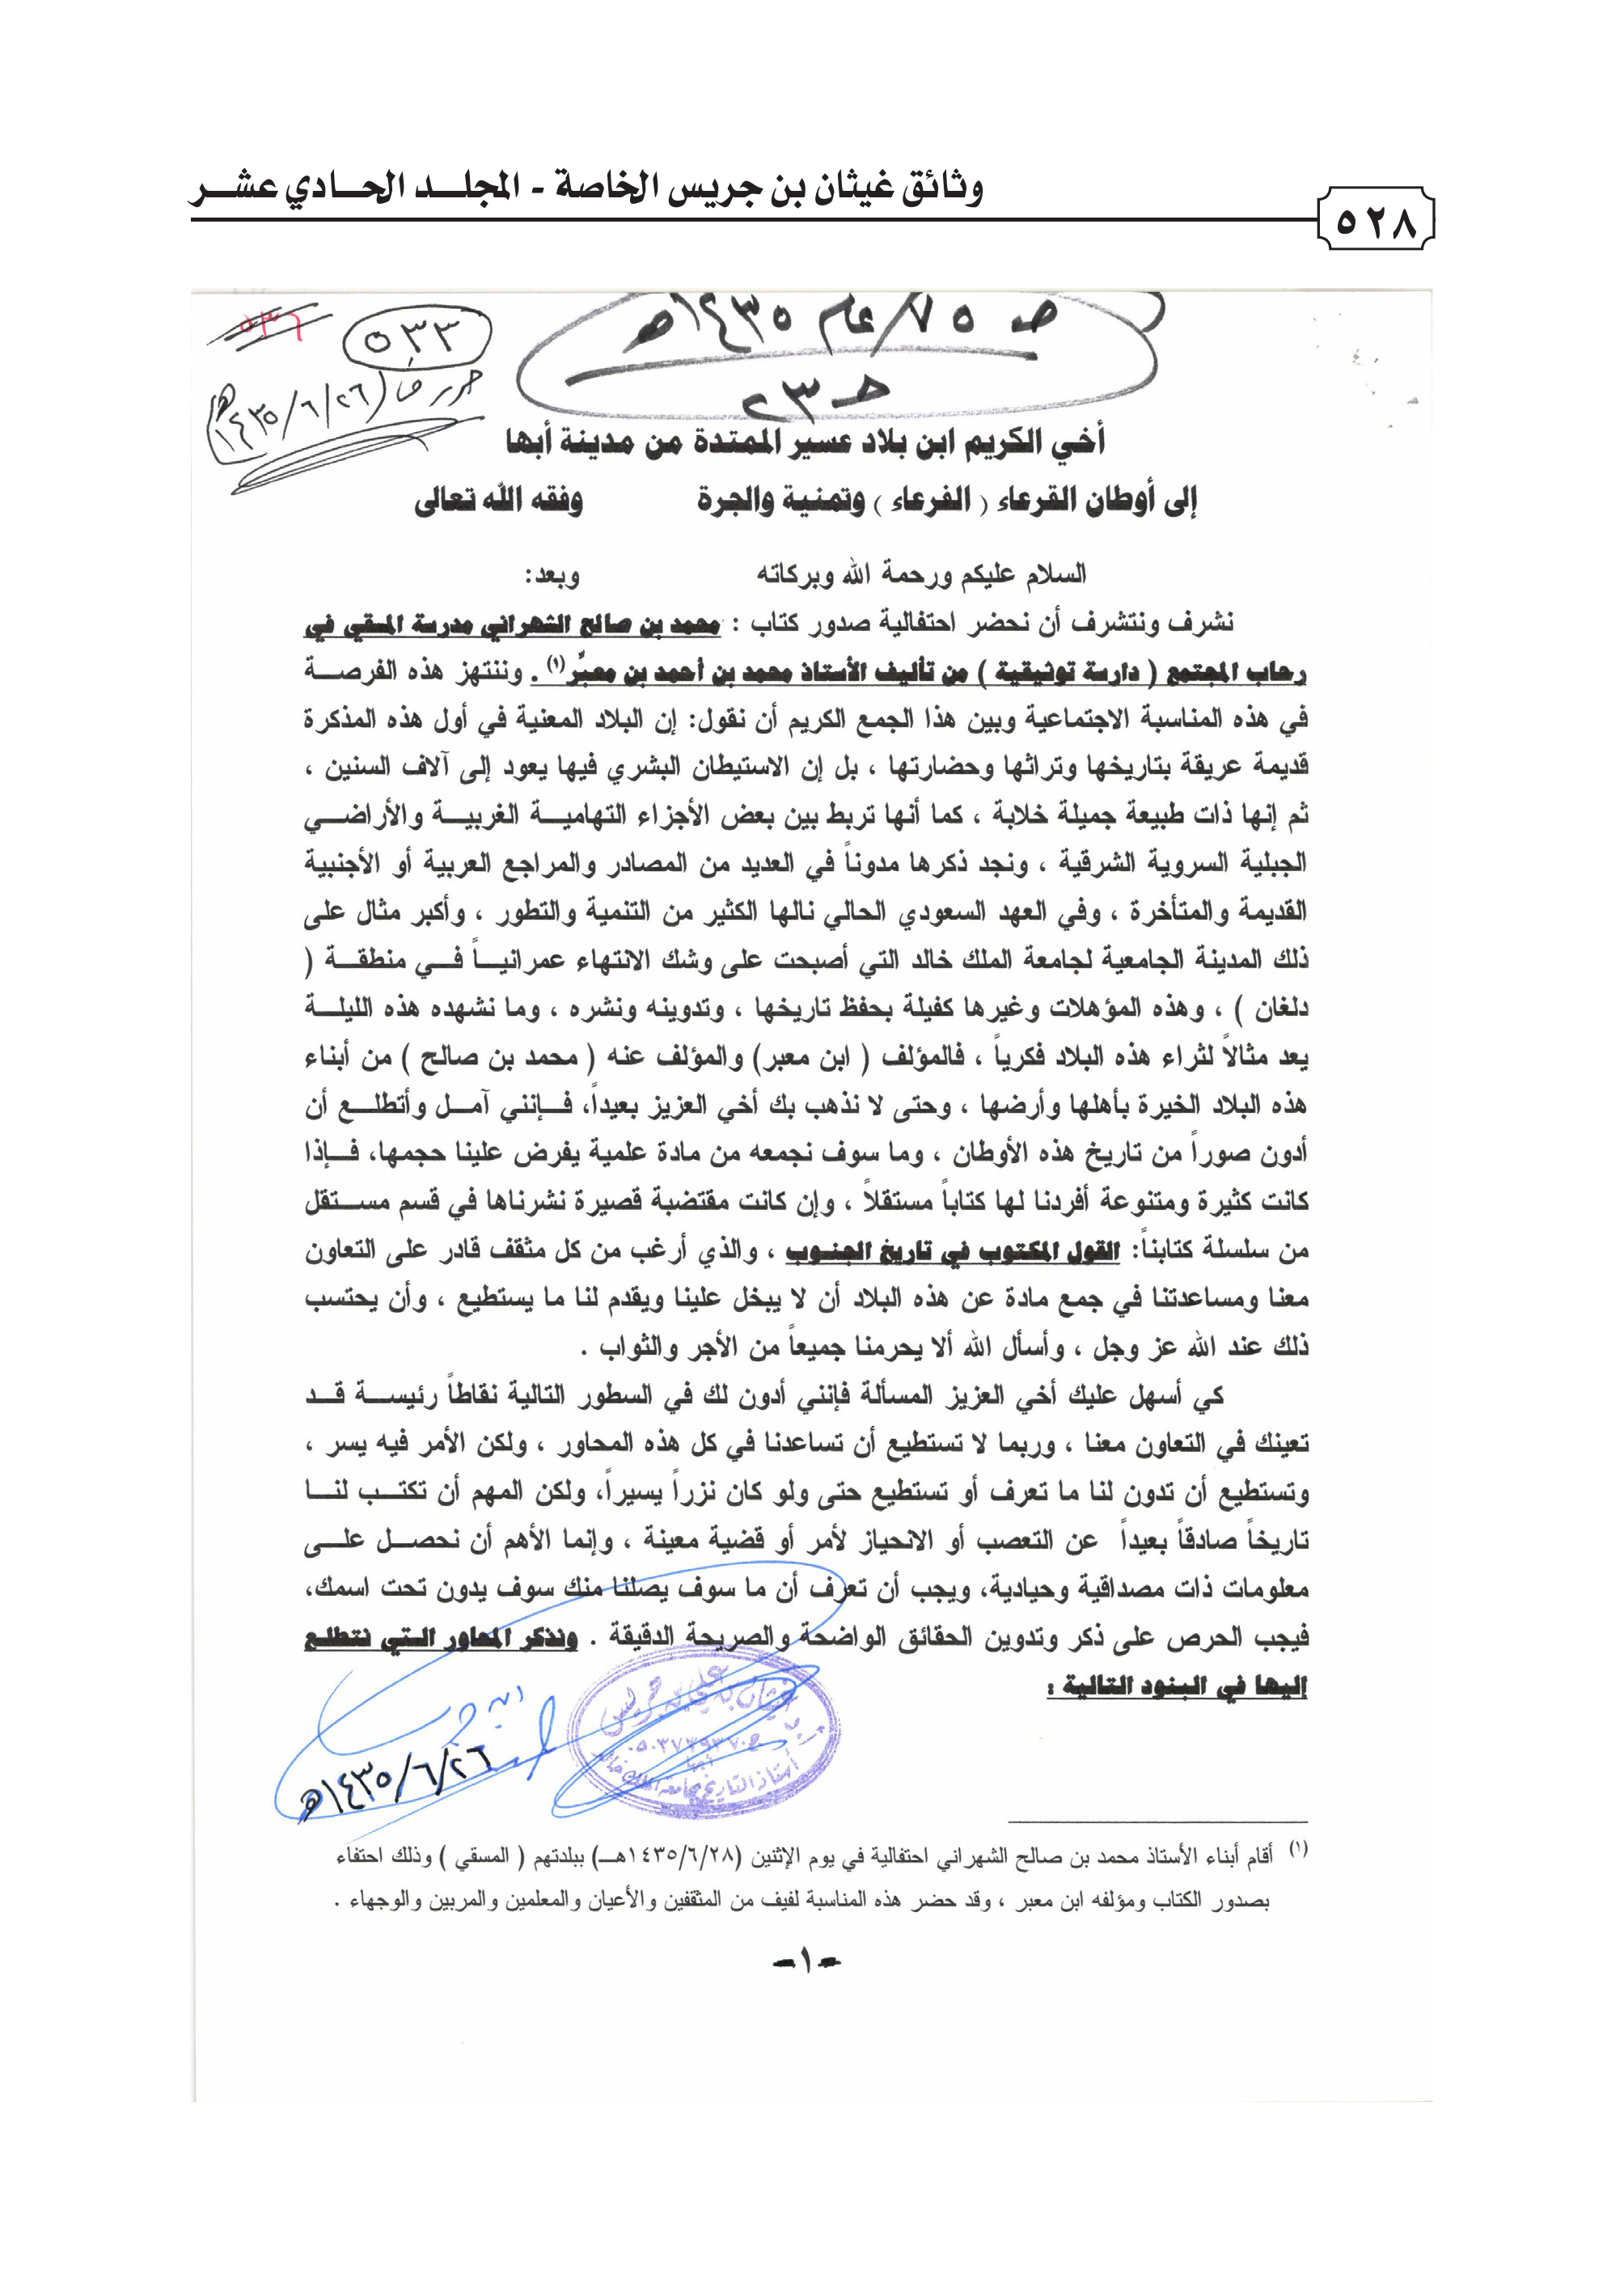 وثائق غيثان بن جريس الخاصة - المجلد الحادي عشر
٥٢٨
٥٣٣
ص ٧٥/عام ١٤٣٥هـ
حرر في (١٤٣٥/٦/٢٦هـ)
ص ٢٣
أخي الكريم ابن بلاد عسير الممتدة من مدينة أبها
إلى أوطان القرعاء ( الفرعاء ) وتمنية والجرة وفقه الله تعالى
السلام عليكم ورحمة الله وبركاته وبعد:
نشرف ونتشرف أن نحضر احتفالية صدور كتاب : محمد بن صالح الشهراني مدرسة المسقي في
رحاب المجتمع ( دارسة توثيقية ) من تأليف الأستاذ محمد بن أحمد بن معبّر(١) . وننتهز هذه الفرصة
في هذه المناسبة الاجتماعية وبين هذا الجمع الكريم أن نقول: إن البلاد المعنية في أول هذه المذكرة
قديمة عريقة بتاريخها وتراثها وحضارتها ، بل إن الاستيطان البشري فيها يعود إلى آلاف السنين ،
ثم إنها ذات طبيعة جميلة خلابة ، كما أنها تربط بين بعض الأجزاء التهامية الغربية والأراضي
الجبلية السروية الشرقية ، ونجد ذكرها مدوناً في العديد من المصادر والمراجع العربية أو الأجنبية
القديمة والمتأخرة ، وفي العهد السعودي الحالي نالها الكثير من التنمية والتطور ، وأكبر مثال على
ذلك المدينة الجامعية لجامعة الملك خالد التي أصبحت على وشك الانتهاء عمرانياً في منطقة (
دلغان ) ، وهذه المؤهلات وغيرها كفيلة بحفظ تاريخها ، وتدوينه ونشره ، وما نشهده هذه الليلة
يعد مثالاً لثراء هذه البلاد فكرياً ، فالمؤلف ( ابن معبر) والمؤلف عنه ( محمد بن صالح ) من أبناء
هذه البلاد الخيرة بأهلها وأرضها ، وحتى لا نذهب بك أخي العزيز بعيداً، فإنني آمل وأتطلع أن
أدون صوراً من تاريخ هذه الأوطان ، وما سوف نجمعه من مادة علمية يفرض علينا حجمها، فإذا
كانت كثيرة ومتنوعة أفردنا لها كتاباً مستقلاً ، وإن كانت مقتضبة قصيرة نشرناها في قسم مستقل
من سلسلة كتابناً: القول المكتوب في تاريخ الجنوب ، والذي أرغب من كل مثقف قادر على التعاون
معنا ومساعدتنا في جمع مادة عن هذه البلاد أن لا يبخل علينا ويقدم لنا ما يستطيع ، وأن يحتسب
ذلك عند الله عز وجل ، وأسأل الله ألا يحرمنا جميعاً من الأجر والثواب .
كي أسهل عليك أخي العزيز المسألة فإنني أدون لك في السطور التالية نقاطاً رئيسة قد
تعينك في التعاون معنا ، وربما لا تستطيع أن تساعدنا في كل هذه المحاور ، ولكن الأمر فيه يسر ،
وتستطيع أن تدون لنا ما تعرف أو تستطيع حتى ولو كان نزراً يسيراً، ولكن المهم أن تكتب لنا
تاريخاً صادقاً بعيداً عن التعصب أو الانحياز لأمر أو قضية معينة ، وإنما الأهم أن نحصل على
معلومات ذات مصداقية وحيادية، ويجب أن تعرف أن ما سوف يصلنا منك سوف يدون تحت اسمك،
فيجب الحرص على ذكر وتدوين الحقائق الواضحة والصريحة الدقيقة . ونذكر المحاور التي نتطلع
إليها في البنود التالية :
غيثان بن علي بن جريس
أستاذ التاريخ بجامعة الملك خالد
١٤٣٥/٦/٢٦هـ
(١) أقام أبناء الأستاذ محمد بن صالح الشهراني احتفالية في يوم الإثنين (١٤٣٥/٦/٢٨هـ) ببلدتهم ( المسقي ) وذلك احتفاء
بصدور الكتاب ومؤلفه ابن معبر ، وقد حضر هذه المناسبة لفيف من المثقفين والأعيان والمعلمين والمربين والوجهاء .
-١-